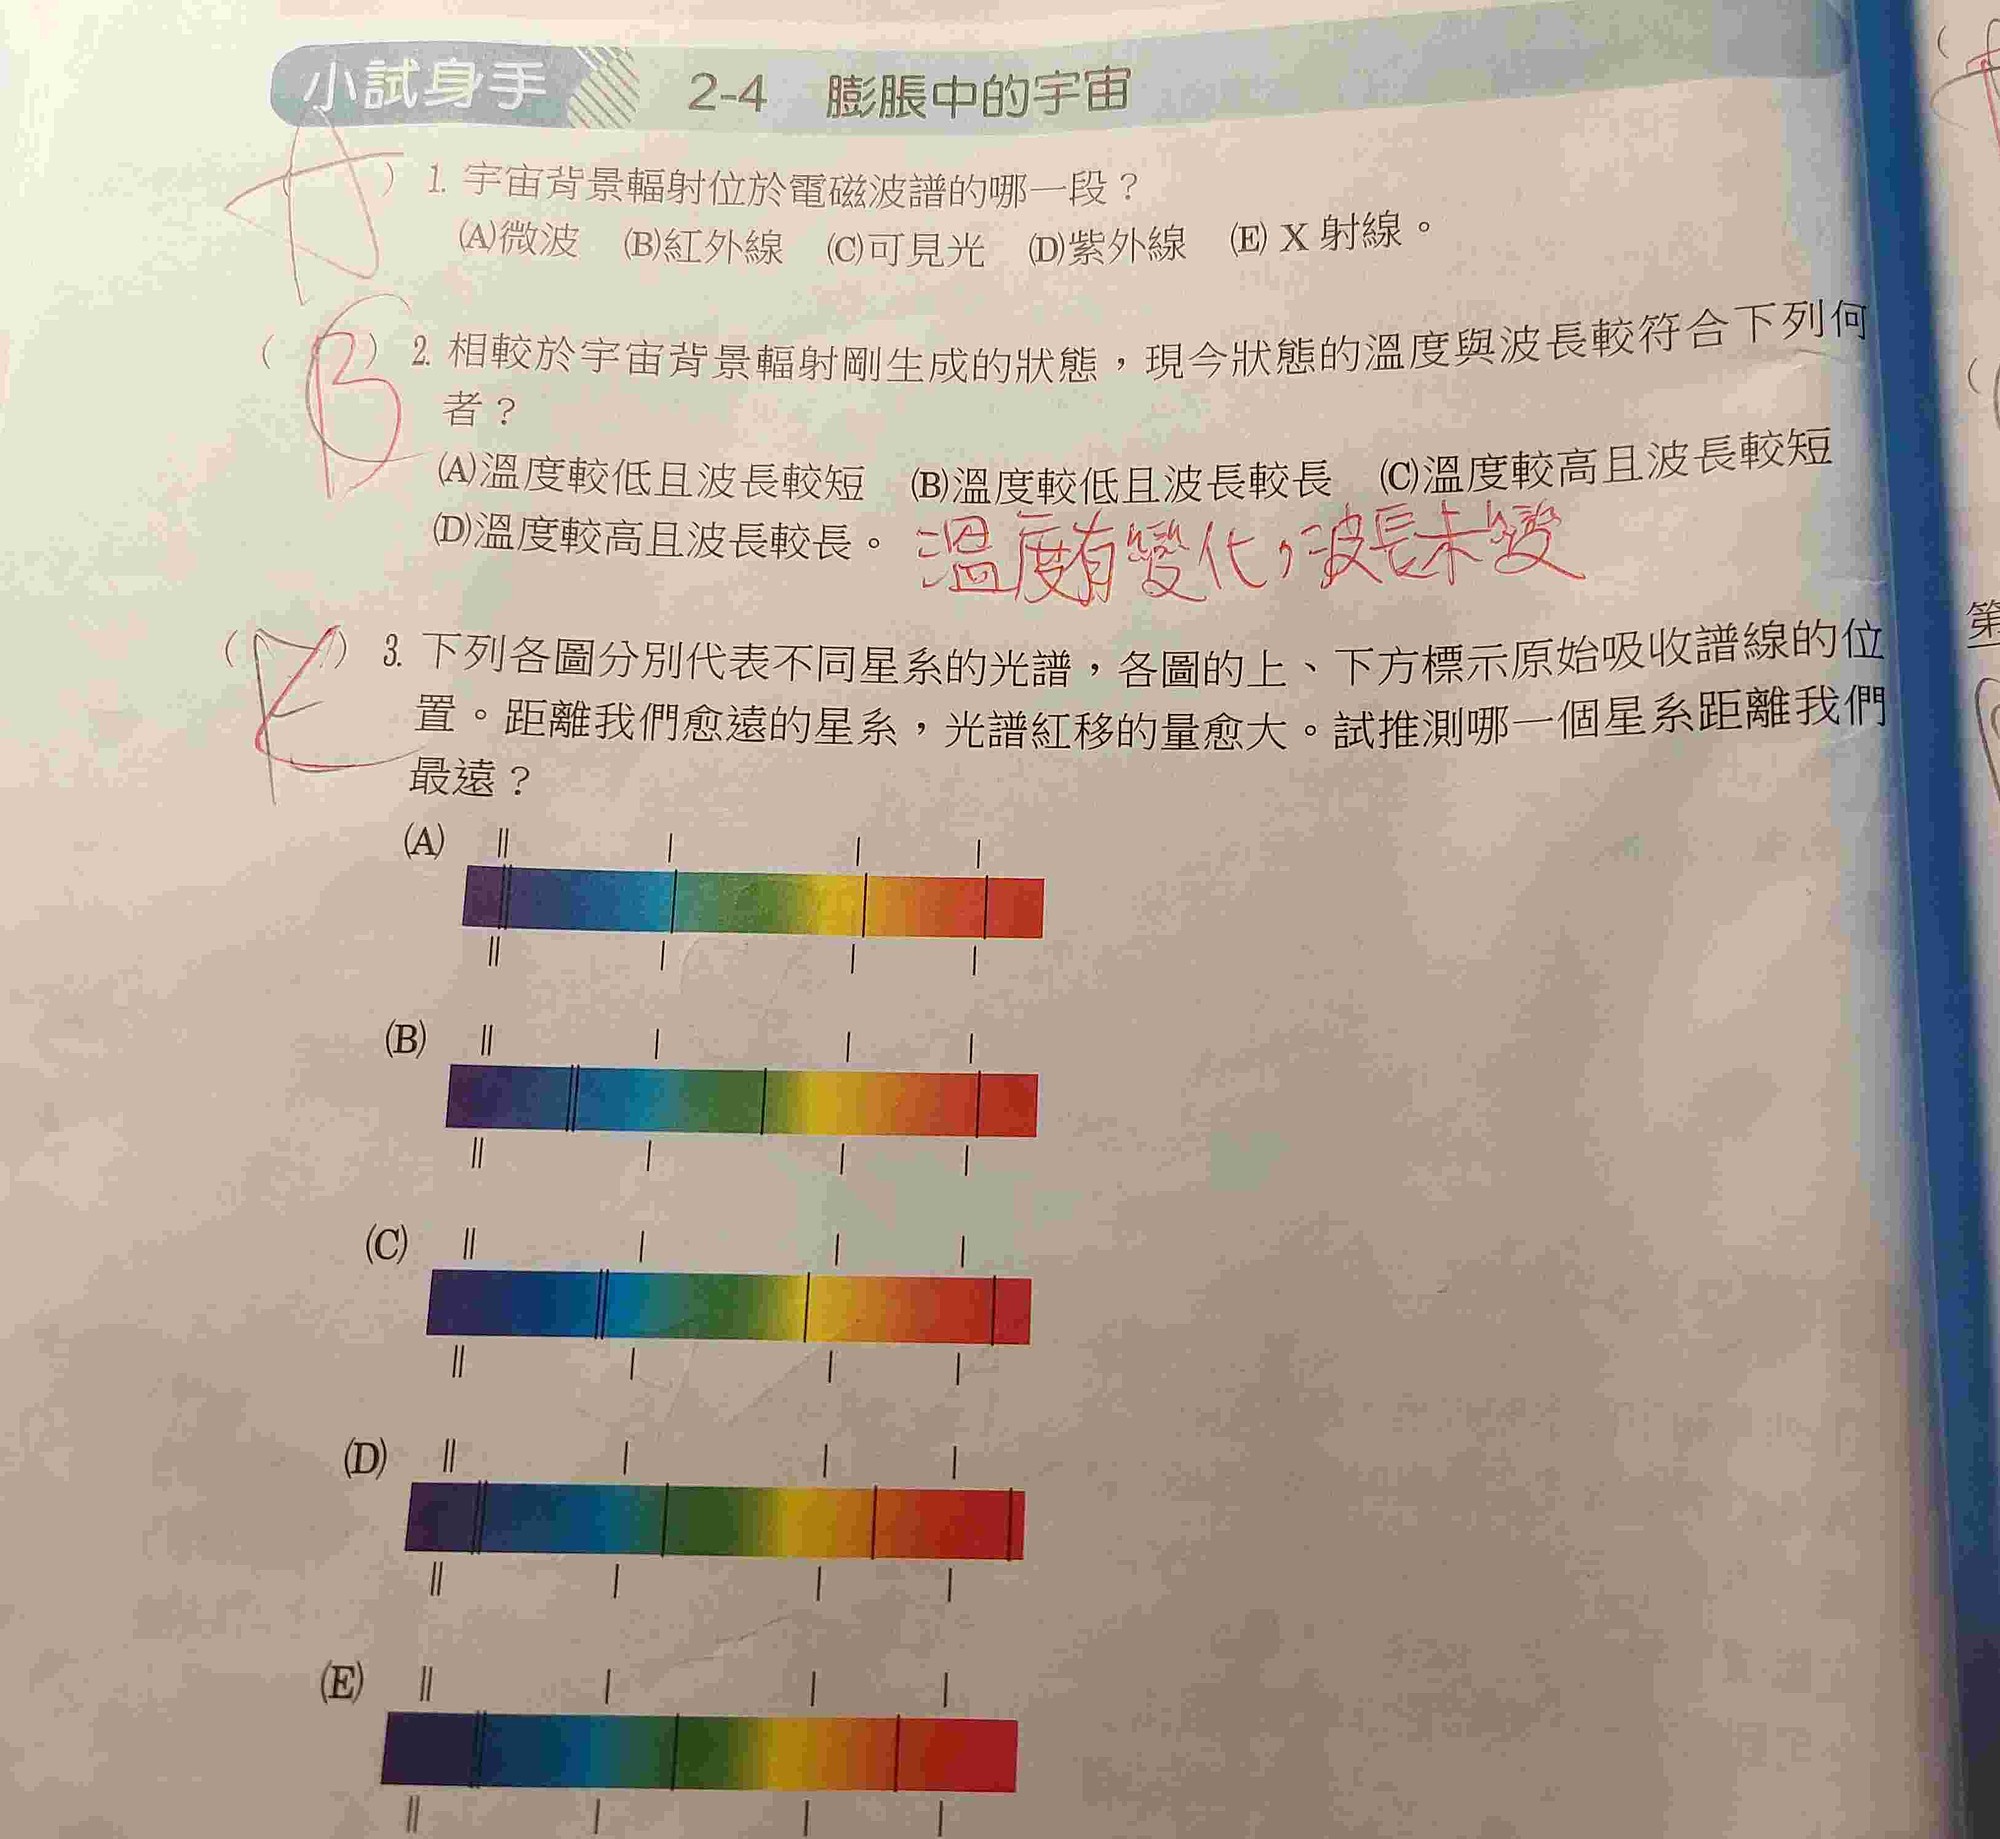 小試身手 2-4 膨脹中的宇宙
(A) 1. 宇宙背景輻射位於電磁波譜的哪一段？
(A)微波 (B)紅外線 (C)可見光 (D)紫外線 (E) X 射線。
(B) 2. 相較於宇宙背景輻射剛生成的狀態，現今狀態的溫度與波長較符合下列何
者？
(A)溫度較低且波長較短 (B)溫度較低且波長較長 (C)溫度較高且波長較短
(D)溫度較高且波長較長。 溫度有變化，波長未變
( ) 3. 下列各圖分別代表不同星系的光譜，各圖的上、下方標示原始吸收譜線的位
置。距離我們愈遠的星系，光譜紅移的量愈大。試推測哪一個星系距離我們
最遠？
(A)
(B)
(C)
(D)
(E)
第